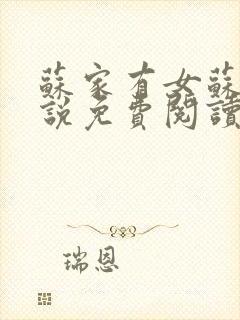 蘇家有女蘇
說免費閱讀
瑞恩